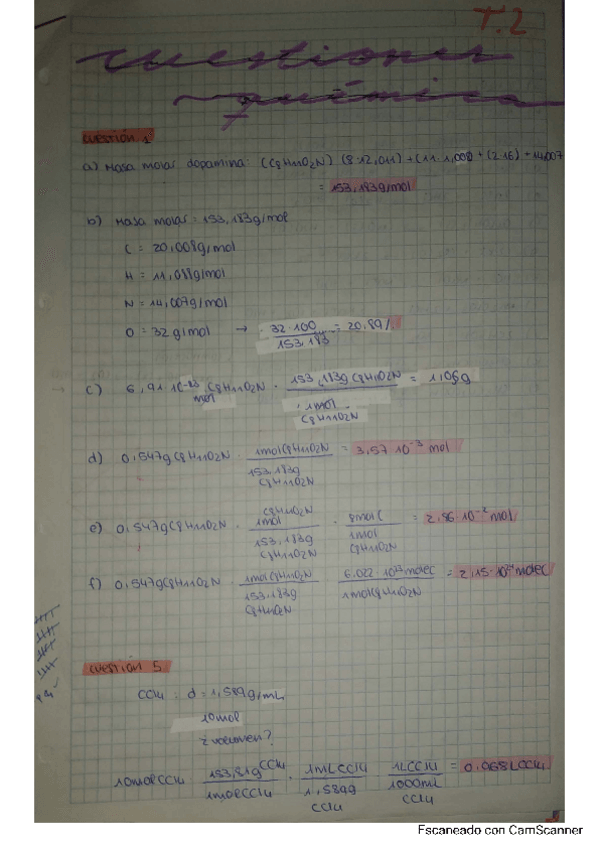 T.2
cuestiones
química
cuestión 1
a) Masa molar dopamina: (C8H11O2N) (8·12,011) + (11·1,008) + (2·16) + 14,007
= 153,183g/mol
b) Masa molar = 153,183g/mol
C = 20,008g/mol
H = 11,088g/mol
N = 14,007g/mol
O = 32g/mol → 32·100 / 153,183 = 20.89%
c) 6,91·10-03 mol C8H11O2N · 153,183g C8H11O2N / 1mol C8H11O2N = 1,06g
d) 0,547g C8H11O2N · 1mol C8H11O2N / 153.183g C8H11O2N = 3,57·10-3 mol
e) 0,547g C8H11O2N · C8H11O2N 1mol / 153,183g C8H11O2N · 8mol C / 1mol C8H11O2N = 2,86·10-2 mol
f) 0,547g C8H11O2N · 1mol C8H11O2N / 153.183g C8H11O2N · 6.022·1023 molec / 1mol C8H11O2N = 2,15·1021 molec
cuestión 5
CCl4 : d = 1,589g/mL
10mol
¿volumen?
10mol CCl4 · 153,81g CCl4 / 1mol CCl4 · 1mL CCl4 / 1,589g CCl4 · 1L CCl4 / 1000mL CCl4 = 0.968L CCl4
Escaneado con CamScanner